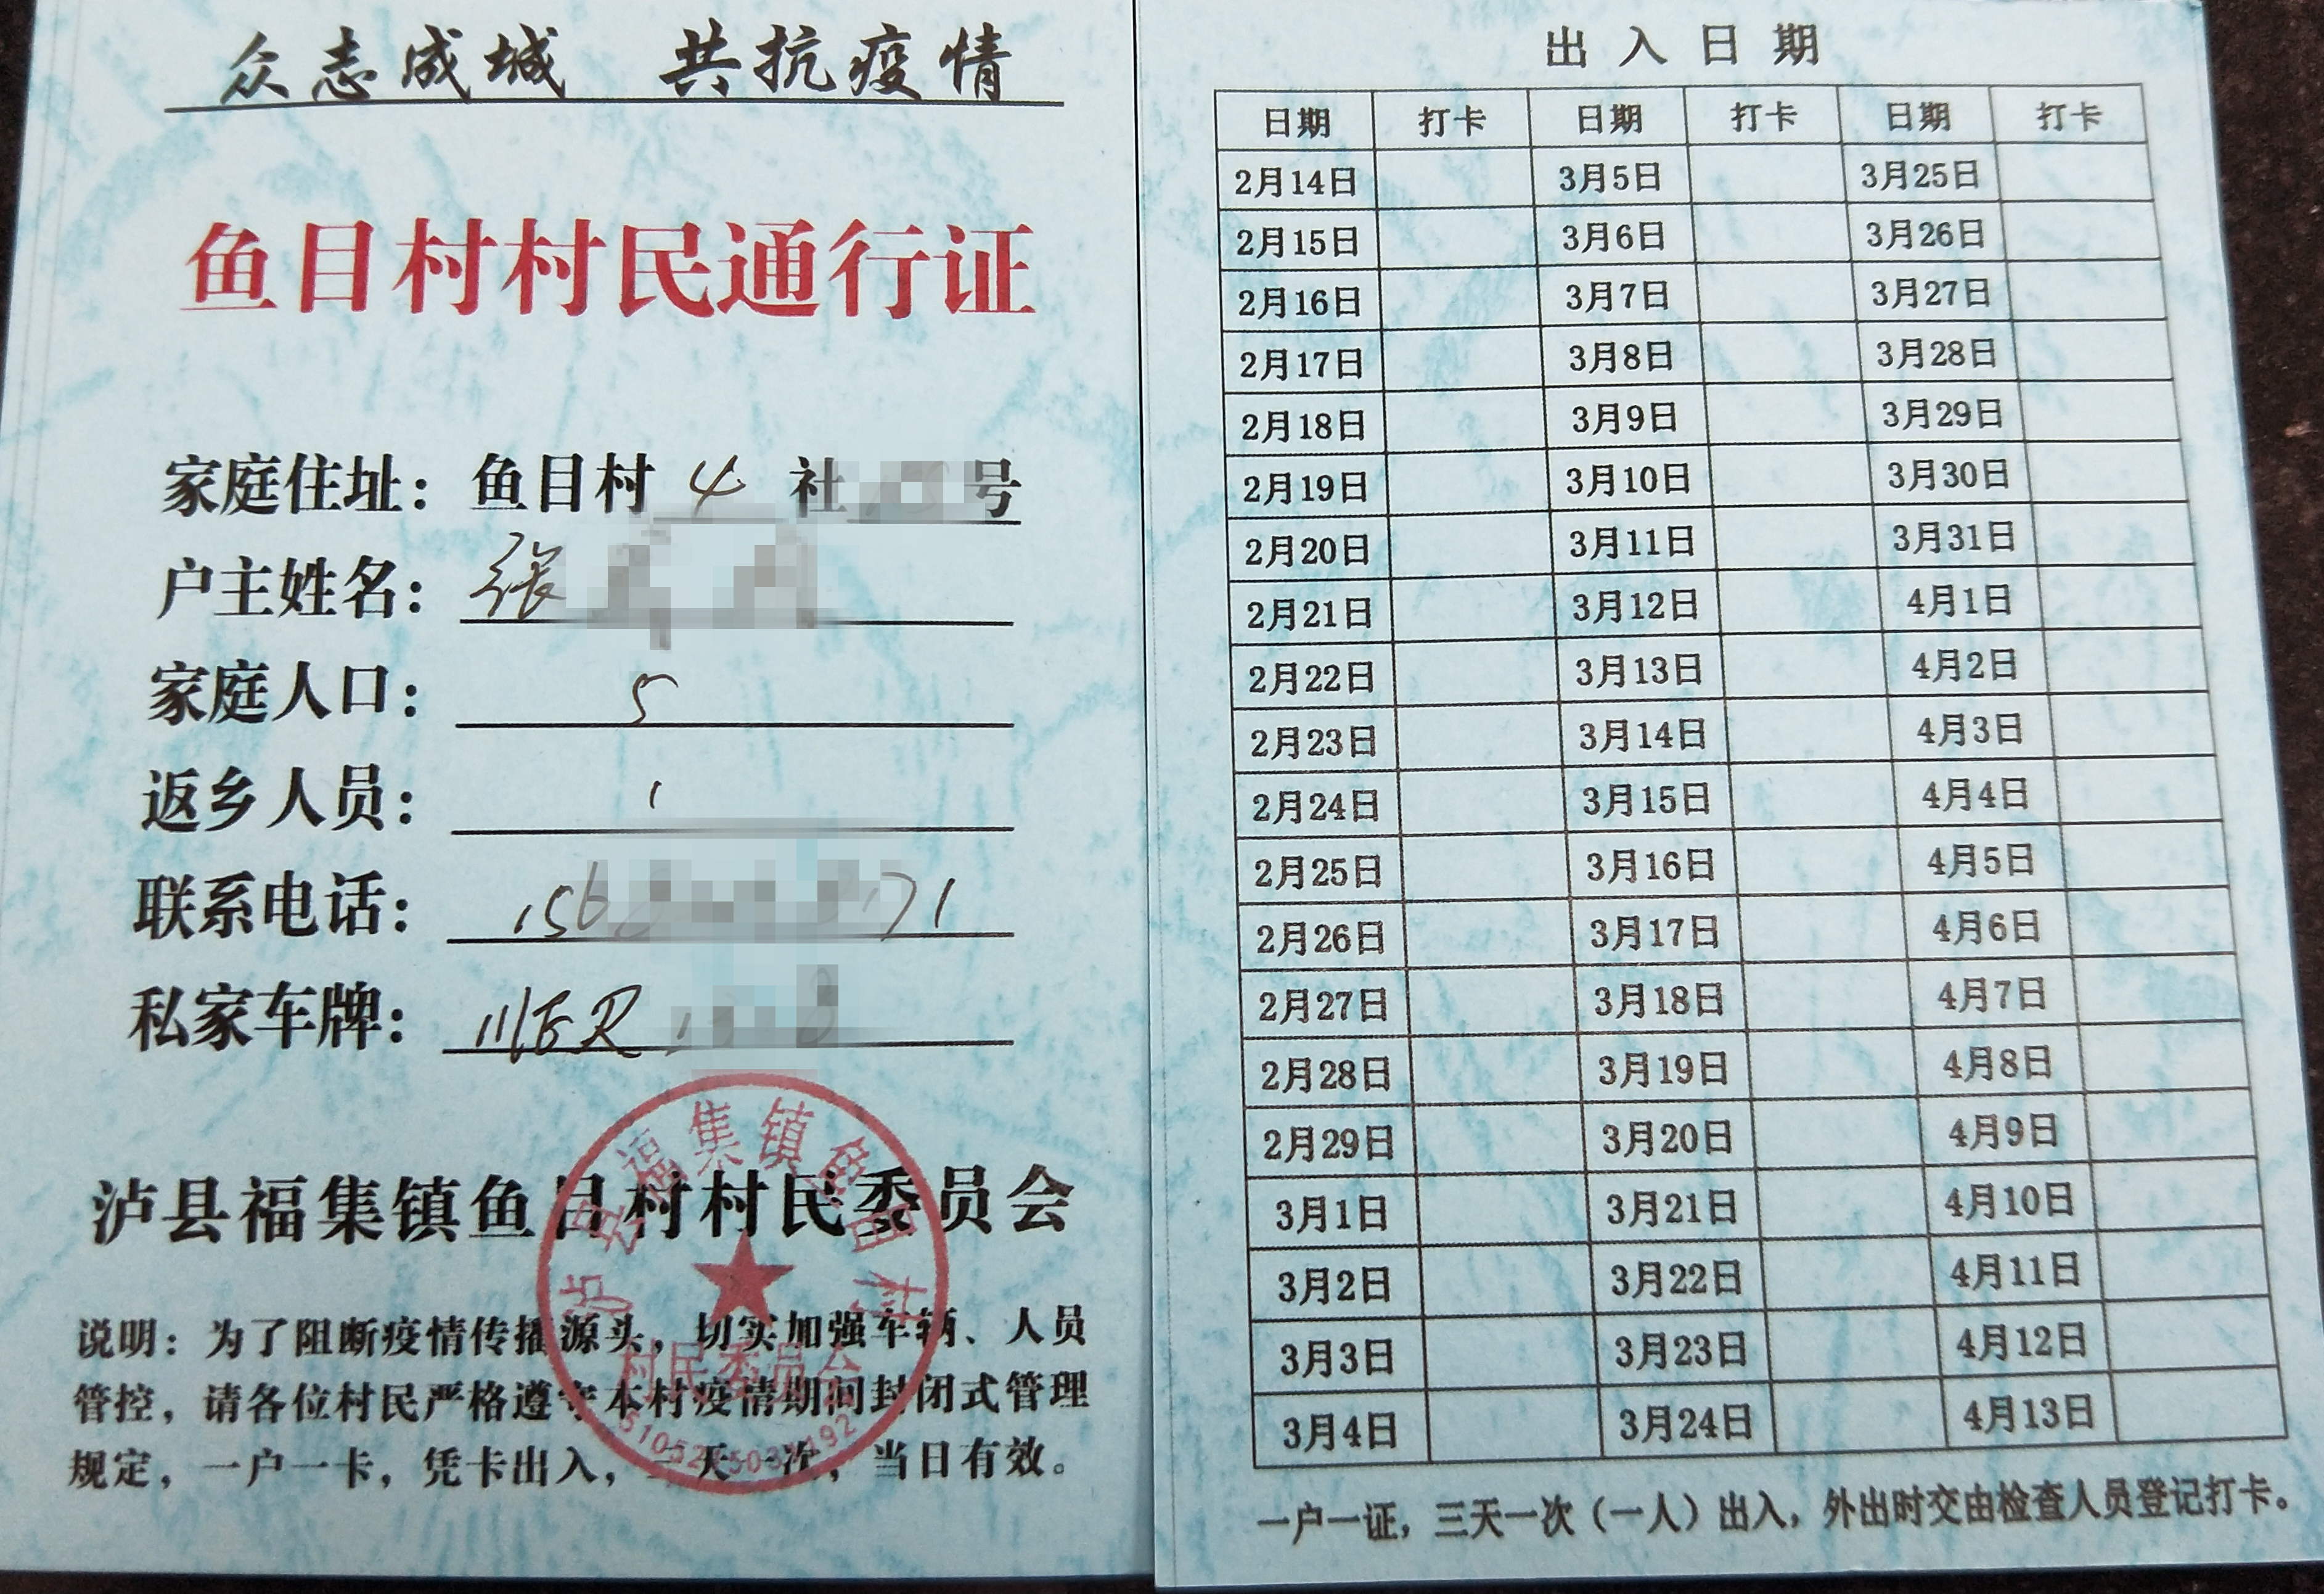 众志成城 共抗疫情
鱼目村村民通行证
家庭住址：鱼目村 4 社 号
户主姓名：张
家庭人口：5
返乡人员：1
联系电话：156 71
私家车牌：川ER
泸县福集镇鱼目村村民委员会
泸县福集镇鱼目村
村民委员会
说明：为了阻断疫情传播源头，切实加强车辆、人员
管控，请各位村民严格遵守本村疫情期间封闭式管理
规定，一户一卡，凭卡出入，三天一次，当日有效。
出入日期
日期 打卡 日期 打卡 日期 打卡
2月14日 3月5日 3月25日
2月15日 3月6日 3月26日
2月16日 3月7日 3月27日
2月17日 3月8日 3月28日
2月18日 3月9日 3月29日
2月19日 3月10日 3月30日
2月20日 3月11日 3月31日
2月21日 3月12日 4月1日
2月22日 3月13日 4月2日
2月23日 3月14日 4月3日
2月24日 3月15日 4月4日
2月25日 3月16日 4月5日
2月26日 3月17日 4月6日
2月27日 3月18日 4月7日
2月28日 3月19日 4月8日
2月29日 3月20日 4月9日
3月1日 3月21日 4月10日
3月2日 3月22日 4月11日
3月3日 3月23日 4月12日
3月4日 3月24日 4月13日
一户一证，三天一次（一人）出入，外出时交由检查人员登记打卡。